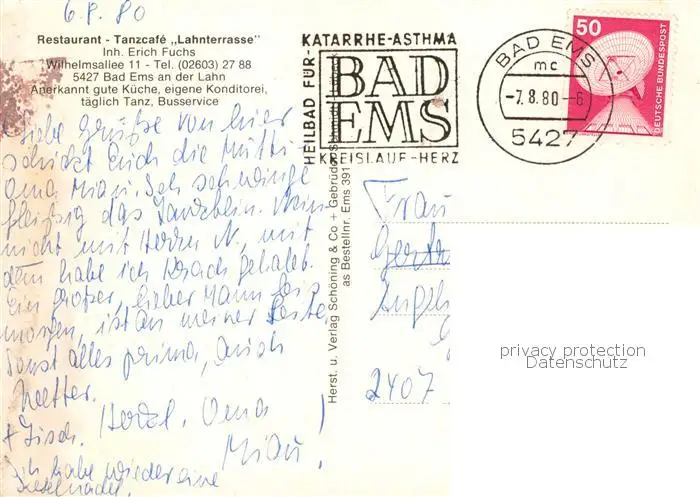 6.8.80
Restaurant - Tanzcafé „Lahnterrasse"
Inh. Erich Fuchs
Wilhelmsallee 11 - Tel. (02603) 27 88
5427 Bad Ems an der Lahn
Anerkannt gute Küche, eigene Konditorei,
täglich Tanz, Busservice
HEILBAD FÜR
KATARRHE-ASTHMA
BAD
EMS
KREISLAUF-HERZ
BAD EMS
mc
-7.8.80-6
5427
50
DEUTSCHE BUNDESPOST
Liebe Grüße von hier
schickt Euch die Mutti
Oma Miau. Ich schwinge
fleißig das Tanzbein.
nicht mit Herrn N, mit
dem habe ich Krach gehabt.
Ein großer, lieber Mann bis
morgen, ist an meiner Seite
Sonst alles prima, auch
Wetter.
+ Tisch. Herzl. Oma
Miau!
Ich habe wieder eine
Herst. u. Verlag Schöning & Co + Gebrüder
as Bestellnr. Ems 391
Frau
2407
privacy protection
Datenschutz